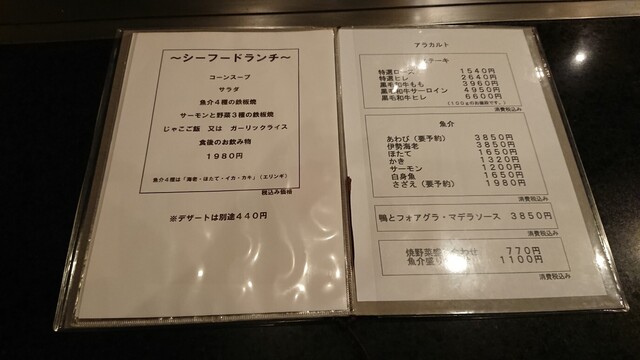 ～シーフードランチ～
コーンスープ
サラダ
魚介４種の鉄板焼
サーモンと野菜３種の鉄板焼
じゃこご飯 又は ガーリックライス
食後のお飲み物
１９８０円
魚介４種は「海老・ほたて・イカ・カキ」（エリンギ）
税込み価格
※デザートは別途４４０円
アラカルト
ステーキ
特選ロース １５４０円
特選ヒレ ２６４０円
黒毛和牛もも ３９６０円
黒毛和牛サーロイン ４９５０円
黒毛和牛ヒレ ６６００円
（１００ｇのお値段です。）
消費税込み
魚介
あわび（要予約） ３８５０円
伊勢海老 ３８５０円
ほたて １６５０円
かき １３２０円
サーモン １２００円
白身魚 １６５０円
さざえ（要予約） １９８０円
消費税込み
鴨とフォアグラ・マデラソース ３８５０円
消費税込み
焼野菜盛り合わせ ７７０円
魚介盛り １１００円
消費税込み